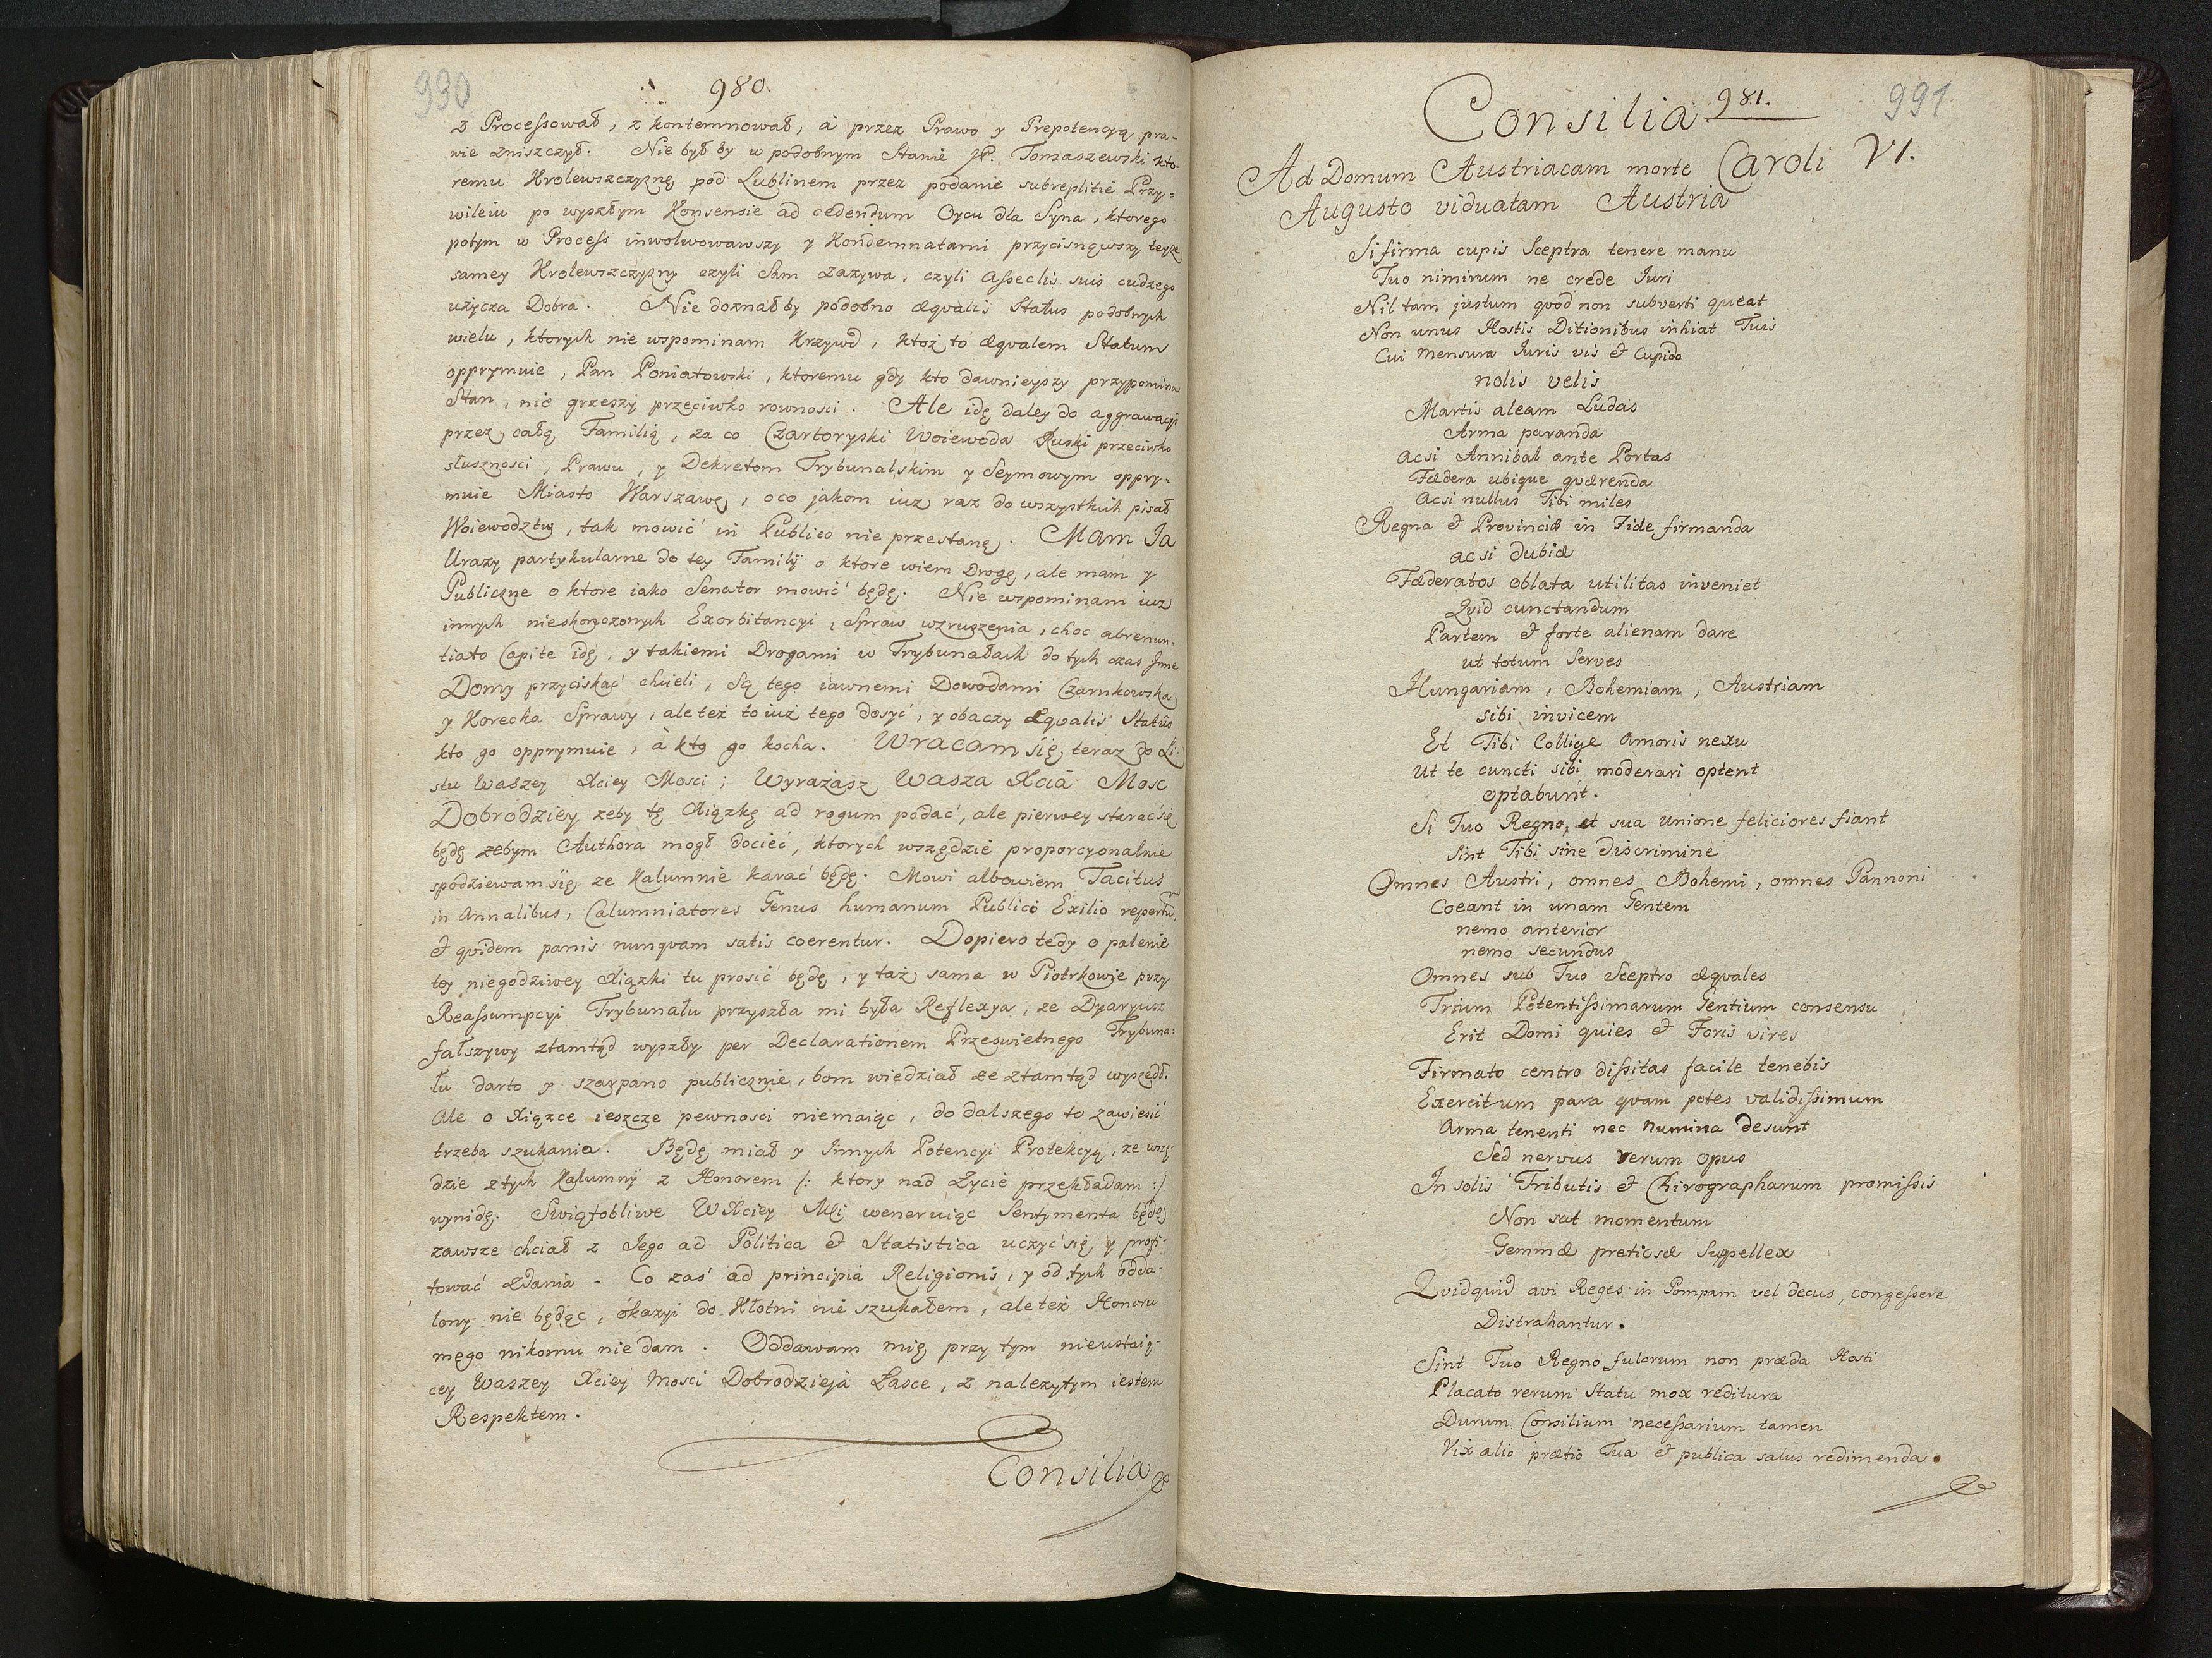 990
980.
z Processował, z kontemnował, à przez Prawo y Prepotencyą pra-
wie zniszczył. Nie był by w podobnym Stanie JP. Tomaszewski kto-
remu Krolewszczyznę pod Lublinem przez podanie subreptitie Przy=
wileiu po wyszłym Konsensie ad cedendum Oycu dla Syna, ktorego
potym w Process inwolwowawszy y Kondemnatami przycisnąwszy teyże
samey Krolewszczyzny czyli Sam zazywa, czyli Asseclis suis cudzego
uzycza Dobra. Nie doznał by podobno æqvalis Status podobnych
wielu, ktorych nie wspominam Krzywd, ktoż to æqvalem Statum
opprymuie, Pan Poniatowski, ktoremu gdy kto dawnieyszy przypomina
Stan, nic grzeszy przeciwko rownosci. Ale idę daley do aggrawacji
przez całą Familią, za co Czartoryski Woiewoda Ruski przeciwko
słusznosci, Prawu, y Dekretom Trybunalskim y Seymowym oppry-
muie Miasto Warszawę, o co jakom iuz raz do wszystkich pisał
Woiewodztw, tak mowić in Publico nie przestanę. Mam Ja
Urazy partykularne do tey Familij o ktore wiem Drogę, ale mam y
Publiczne o ktore iako Senator mowić będę. Nie wspominam iuz
innych nieskonczonych Exorbitancyi, Spraw wzruszenia, choc abrenun-
tiato Capite idę, y takiemi Drogami w Trybunałach do tych czas Jnne
Domy przyciskać chcieli, Są tego iawnemi Dowodami Czarnkowska
y Korecka Sprawy, ale też to iuż tego dosyć, y obaczy æqvalis Status
kto go opprymuie, à kto go kocha. Wracam się teraz do Li-
stu Waszey Xciey Mosci; Wyrażasz Wasza Xcia Mosc
Dobrodziey zeby tę Xiązkę ad rogum podać, ale pierwey starać się
będę zebym Authora mogł dociec, ktorych wszędzie proporcyonalnie
spodziewam się ze Kalumnie karać będę. Mowi albowiem Tacitus
in Annalibus, Calumniatores Genus humanum Publico Exilio repertũ,
et qvidem pænis nunqvam satis coerentur. Dopiero tedy o palenie
tey niegodziwey Xiązki tu prosić będę, y taż sama w Piotrkowie przy
Reassumpcyi Trybunału przyszła mi była Reflexya, ze Dyaryusz
fałszywy ztamtąd wyszły per Declarationem Przeswietnego Trybuna:
łu darto y szarpano publicznie, bom wiedział ze ztamtąd wyszedł.
Ale o Xiązce ieszcze pewnosci niemaiąc, do dalszego to zawiesić
trzeba szukania. Będę miał y Jnnych Potencyi Protekcyą, ze wszę-
dzie z tych Kalumnij z Honorem /: ktory nad Zycie przekładam :/
wynidę. Swiątobliwe WXciey Mci weneruiąc Sentymenta będę
zawsze chciał z Jego ad Politica et Statistica uczyć się y profi-
tować Zdania. Co zaś ad principia Religionis, y od tych odda-
lony nie będąc, okazyi do Kłotni nie szukałem, ale też Honoru
mego nikomu nie dam. Oddawam mię przy tym nieustaią-
cey Waszey Xciey Mosci Dobrodzieja Łasce, z nalezytym iestem
Respektem.
Consilia
981.
991
Consilia
Ad Domum Austriacam morte Caroli VI.
Augusto viduatam Austria
Si firma cupis Sceptra tenere manu
Tuo nimirum ne crede Juri
Nil tam justum qvod non subverti queat
Non unus Hostis Ditionibus inhiat Tuis
Cui mensura Juris vis et Cupido
nolis velis
Martis aleam Ludas
Arma paranda
acsi Annibal ante Portas
Fædera ubique qværenda
acsi nullus Tibi miles
Regna et Provinciæ in Fide firmanda
acsi dubiæ
Fæderatos oblata utilitas inveniet
Qvid cunctandum
Partem et forte alienam dare
ut totum Serves
Hungariam, Bohemiam, Austriam
sibi invicem
Et Tibi Collige Amoris nexu
Ut te cuncti sibi moderari optent
optabunt.
Si Tuo Regno, et sua Unione feliciores fiant
Sint Tibi sine Discrimine
Omnes Austri, omnes Bohemi, omnes Pannoni
Coeant in unam Gentem
nemo anterior
nemo secundus
Omnes sub Tuo Sceptro æqvales
Trium Potentissimarum Gentium consensu
Erit Domi quies et Foris vires
Firmato centro dissitas facile tenebis
Exercitum para qvam potes validissimum
Arma tenenti nec Numina desunt
Sed nervus rerum opus
In solis Tributis et Chirographarum promissis
Non sat momentum
Gemmæ pretiosæ Suppellex
Qvidquid avi Reges in Pompam vel decus, congessere
Distrahantur.
Sint Tuo Regno fulcrum non præda Hosti
Placato rerum Statu mox reditura
Durum Consilium necessarium tamen
Vix alio prætio Tua et publica salus redimenda.